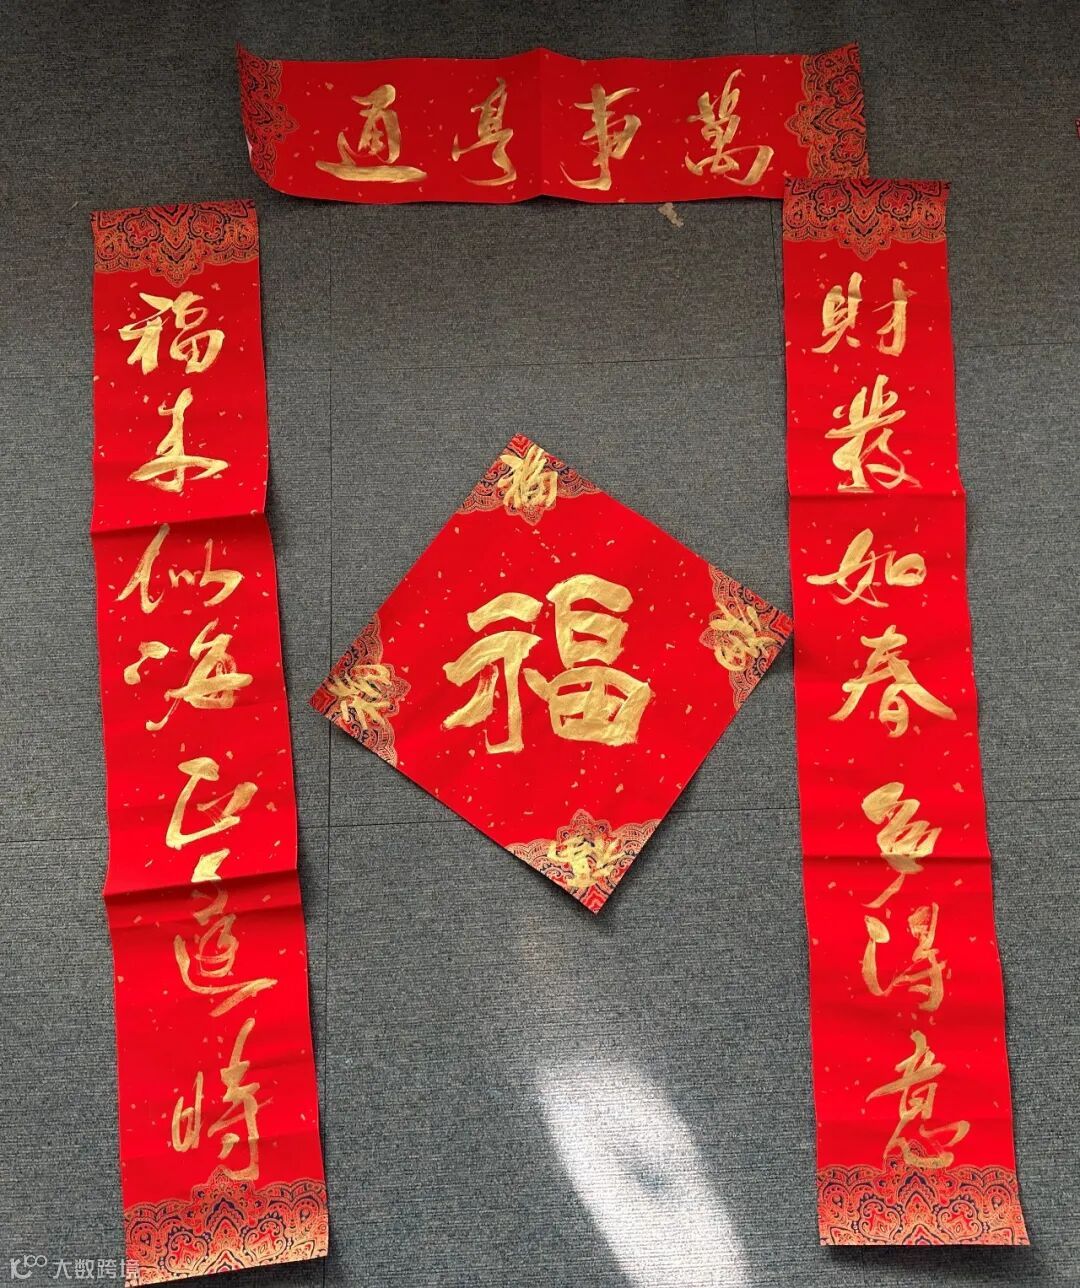 萬事亨通
財發如春多得意
福來似海正逢時
福
福
大数跨境